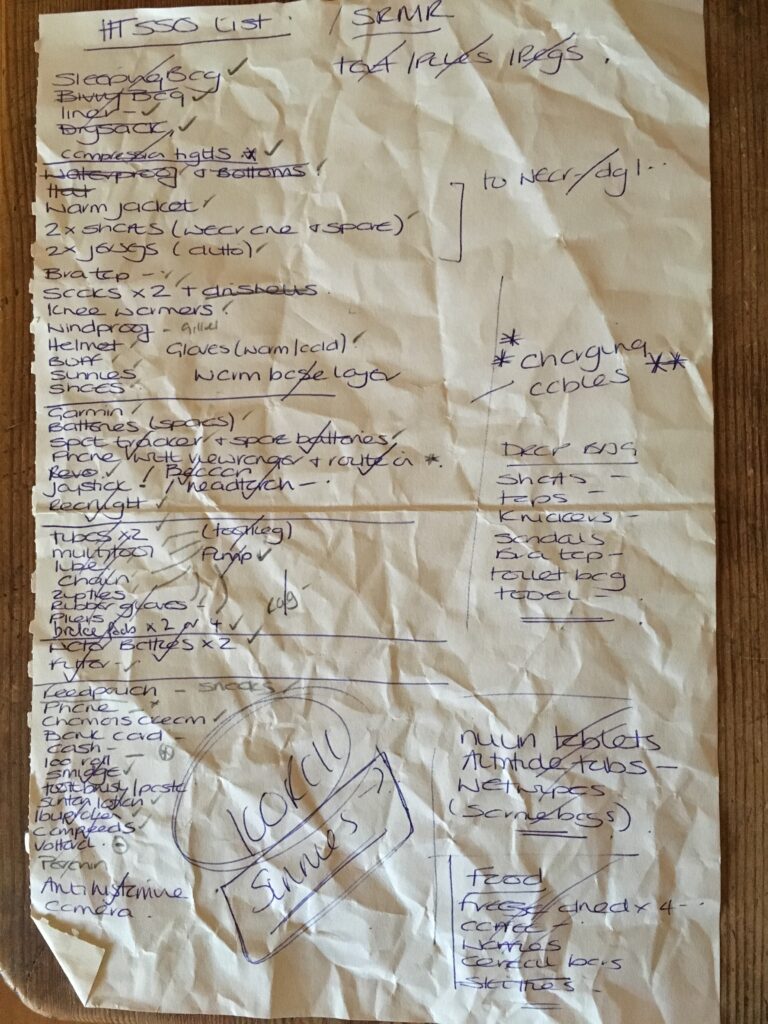 HT550 List. / SRMR
Sleeping Bag
Bivvy Bag
liner
Drysack
compression tights *
Waterproof + Bottoms
Hat
Warm jacket
to wear
2 x shorts (wear one + spare)
2x jerseys (ditto)
Bra top
Socks x 2 +
Knee warmers
Windproof - Gillet
Helmet Gloves (warm/cold)
Buff
Sunnies warm base layer
Shoes
*
* charging **
cables
Garmin
Batteries (spares)
Spot tracker + spare batteries
Phone with viewranger + route on *
Revo / Beacon
Joystick / headtorch
Rearlight
Drop Bag
Shorts -
tops -
Knickers -
Sandals
Bra top -
toilet bag
towel -
tubes x2
multitool Pump
lube
Chain
zipties
Rubber gloves
Pliers
brake pads x 2 or 4
Water Bottles x 2
Filter
Feedpouch - snacks
Phone
Chamois cream
Bank card
cash -
loo roll -
smidge
toothbrush/paste
suntan lotion
Ibuprofen
compeeds
Voltarol
Antihistamine
camera
Sinnies
nuun tablets
wetwipes
Food
Freeze dried x 4
coffee -
Wayfarers
cereal bars
Skittles -